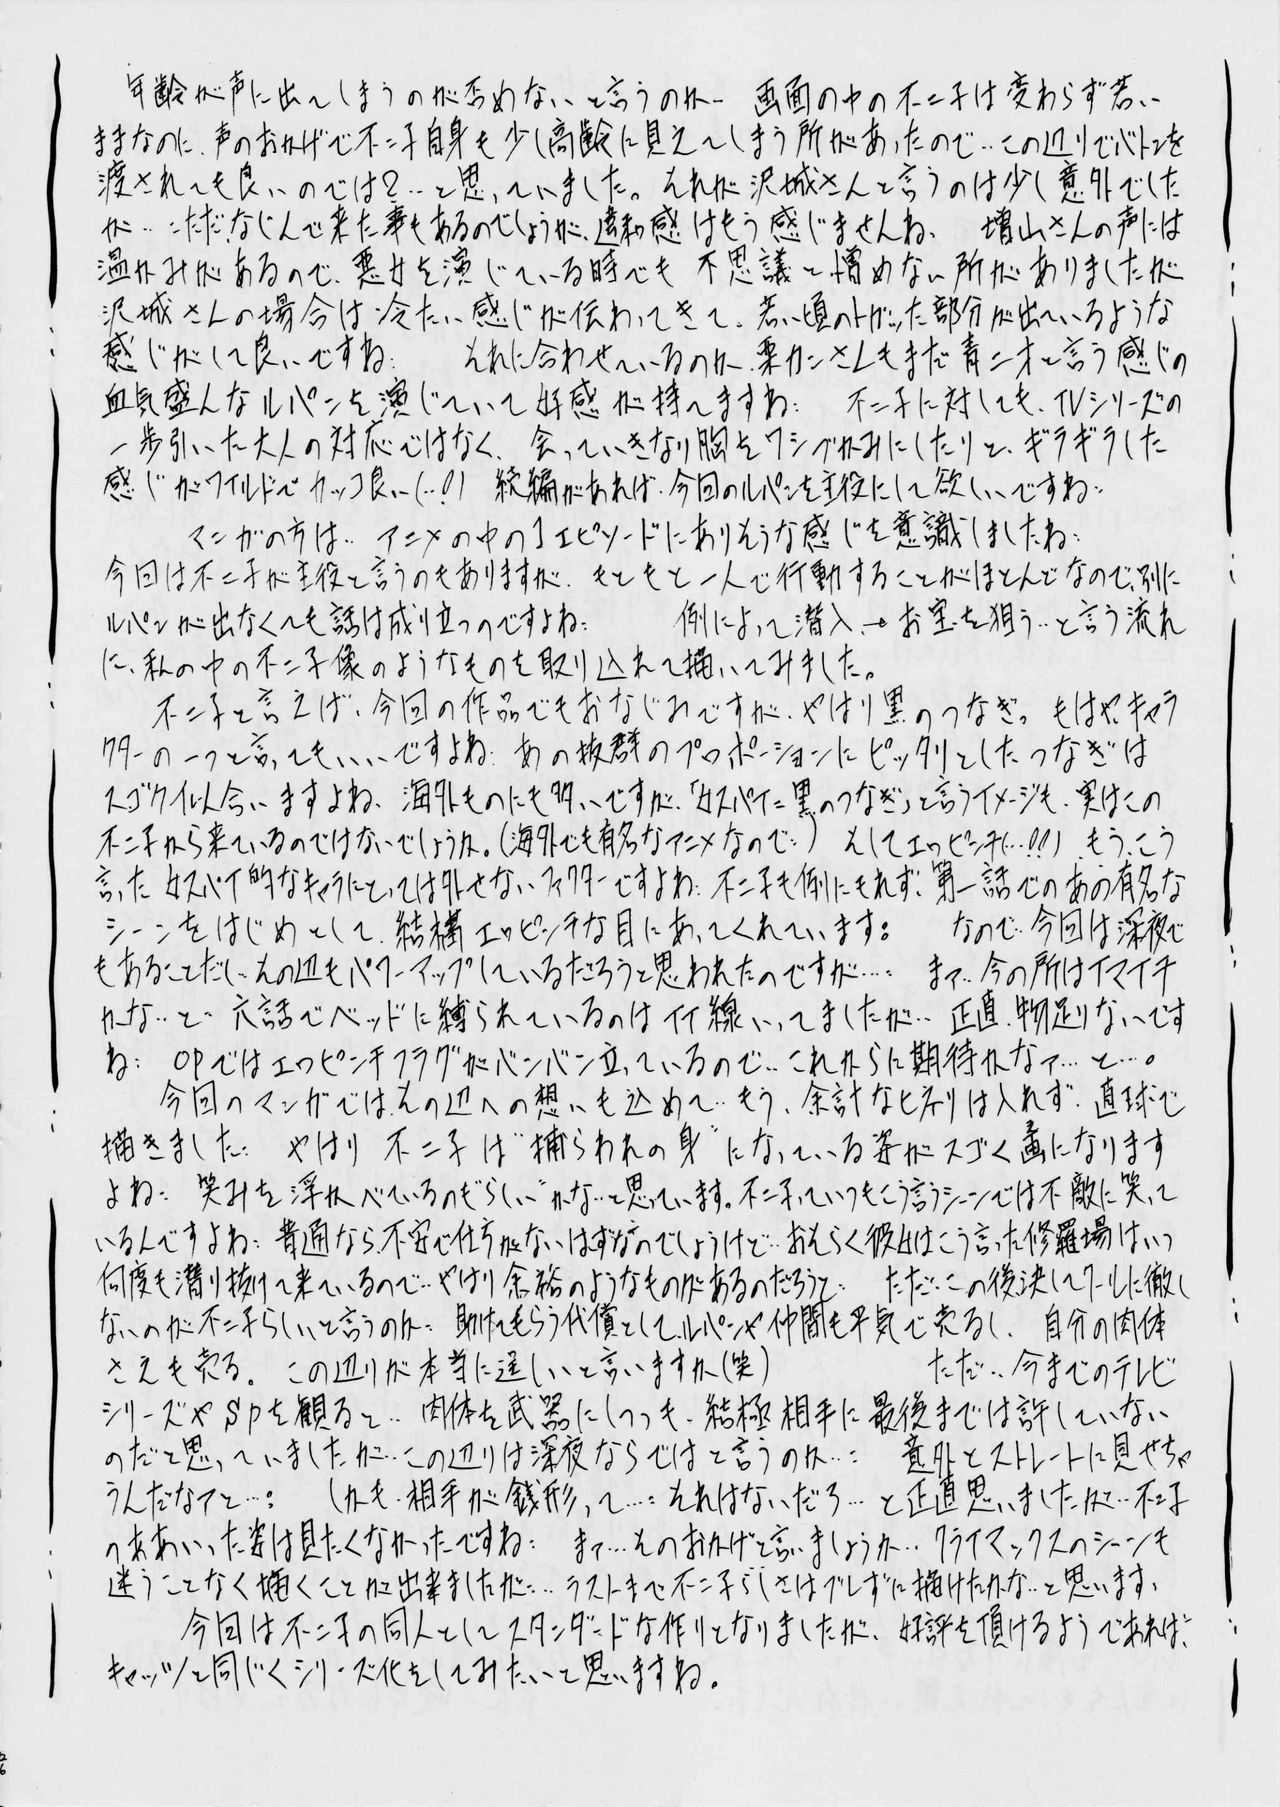 年齢が声に出てしまうのが否めないと言うのか… 画面の中の不二子は変わらず若い
ままなのに、声のおかげで不二子自身も少し高齢に見えてしまう所があったので…この辺りでバトンを
渡されても良いのでは?…と思っていました。それが沢城さんと言うのは少し意外でした
が… ただ、なじんで来た事もあるのでしょうが、違和感はもう感じませんね、 増山さんの声には
温かみがあるので、悪女を演じている時でも不思議と憎めない所がありましたが
沢城さんの場合は冷たい感じが伝わってきて、若い頃のトガッた部分が出ているような
感じがして良いですね… それに合わせているのか、栗カンさんもまだ青二才と言う感じの
血気盛んなルパンを演じていて好感が持てますね… 不二子に対しても、TVシリーズの
一歩引いた大人の対応ではなく、会っていきなり胸をワシヅかみにしたりと、ギラギラした
感じがワイルドでカッコ良い(…!) 続編があれば、今回のルパンを主役にして欲しいですね…
マンガの方は… アニメの中の1エピソードにありそうな感じを意識しましたね…
今回は不二子が主役と言うのもありますが、もともと一人で行動することがほとんどなので、別に
ルパンが出なくても話は成り立つのですよね… 例によって潜入→お宝を狙う…と言う流れ
に、私の中の不二子像のようなものを取り込れて描いてみました。
不二子と言えば、今回の作品でもおなじみですが、やはり黒のつなぎっ もはや、キャラ
クターの一つと言ってもいいですよね… あの抜群のプロポーションにピッタリとしたつなぎは
スゴク似合いますよね、海外ものにも多いですが、「女スパイ=黒のつなぎ」と言うイメージも、実はこの
不二子から来ているのではないでしょうか。(海外でも有名なアニメなので…) そしてエロピンチ(…!!) もう、こう
言った女スパイ的なキャラにとっては外せないファクターですよね… 不二子も例にもれず、第一話でのあの有名な
シーンをはじめとして、結構エロピンチな目にあってくれています… なので…今回は深夜で
もあることだし…その辺もパワーアップしているだろうと思われたのですが…… まァ…今の所はイマイチ
かな…と… 六話でベッドに縛られているのはイイ線いってましたが… 正直、物足りないです
ね… OPではエロピンチフラグがバンバン立っているので…これからに期待かなァ…と…。
今回のマンガでは、その辺への想いも込めて…もう、余計なヒネリは入れず、直球で
描きました… やはり 不二子は"捕らわれの身"になっている姿がスゴく画になります
よね… 笑みを浮かべているのも"らしい"かな…と思っています。不二子っていつもこう言うシーンでは不敵に笑って
いるんですよね… 普通なら、不安で仕方がないはずなのでしょうけど…おそらく彼女はこう言った修羅場はいつ
何度も潜り抜けて来ているので…やはり余裕のようなものがあるのだろうと… ただ…この後決してクールに徹し
ないのが不二子らしいと言うのか… 助けてもらう代償として、ルパンや仲間も平気で売るし、自分の肉体
さえも売る。この辺りが本当に逞しいと言いますか(笑) ただ…今までのテレビ
シリーズやSPを観ると… 肉体を武器にしつつも、結極相手に最後までは許していない
のだと思っていましたが…この辺りは深夜ならではと言うのか…… 意外とストレートに見せちゃ
うんだなァと…… しかも、相手が銭形って……それはないだろ…と正直思いましたが…不二子
のああいった姿は見たくなかったですね… まァ…そのおかげと言いましょうか…クライマックスのシーンも
迷うことなく描くことが出来ましたが… ラストまで不二子らしさはブレずに描けたかな…と思います、
今回は不二子の同人としてスタンダードな作りとなりましたが、好評を頂けるようであれば、
キャッツと同じくシリーズ化をしてみたいと思いますね。
26